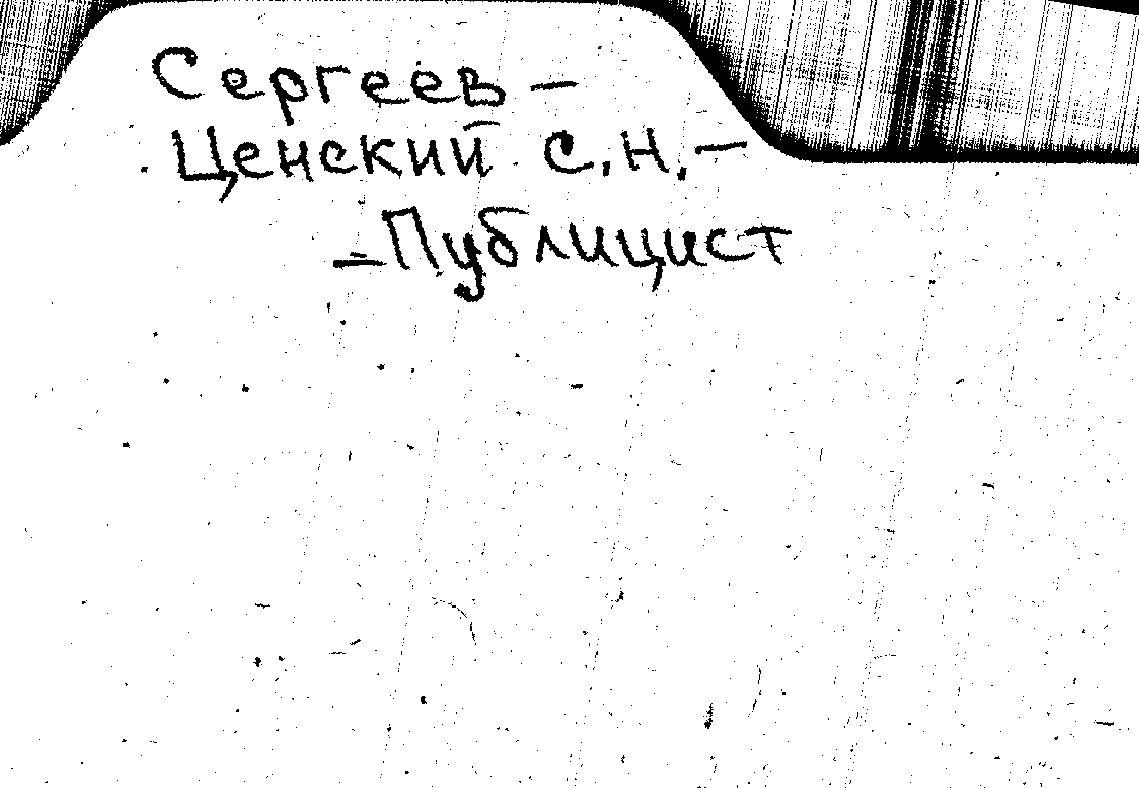 Сергеев –
Ценский С.Н. –
– Публицист